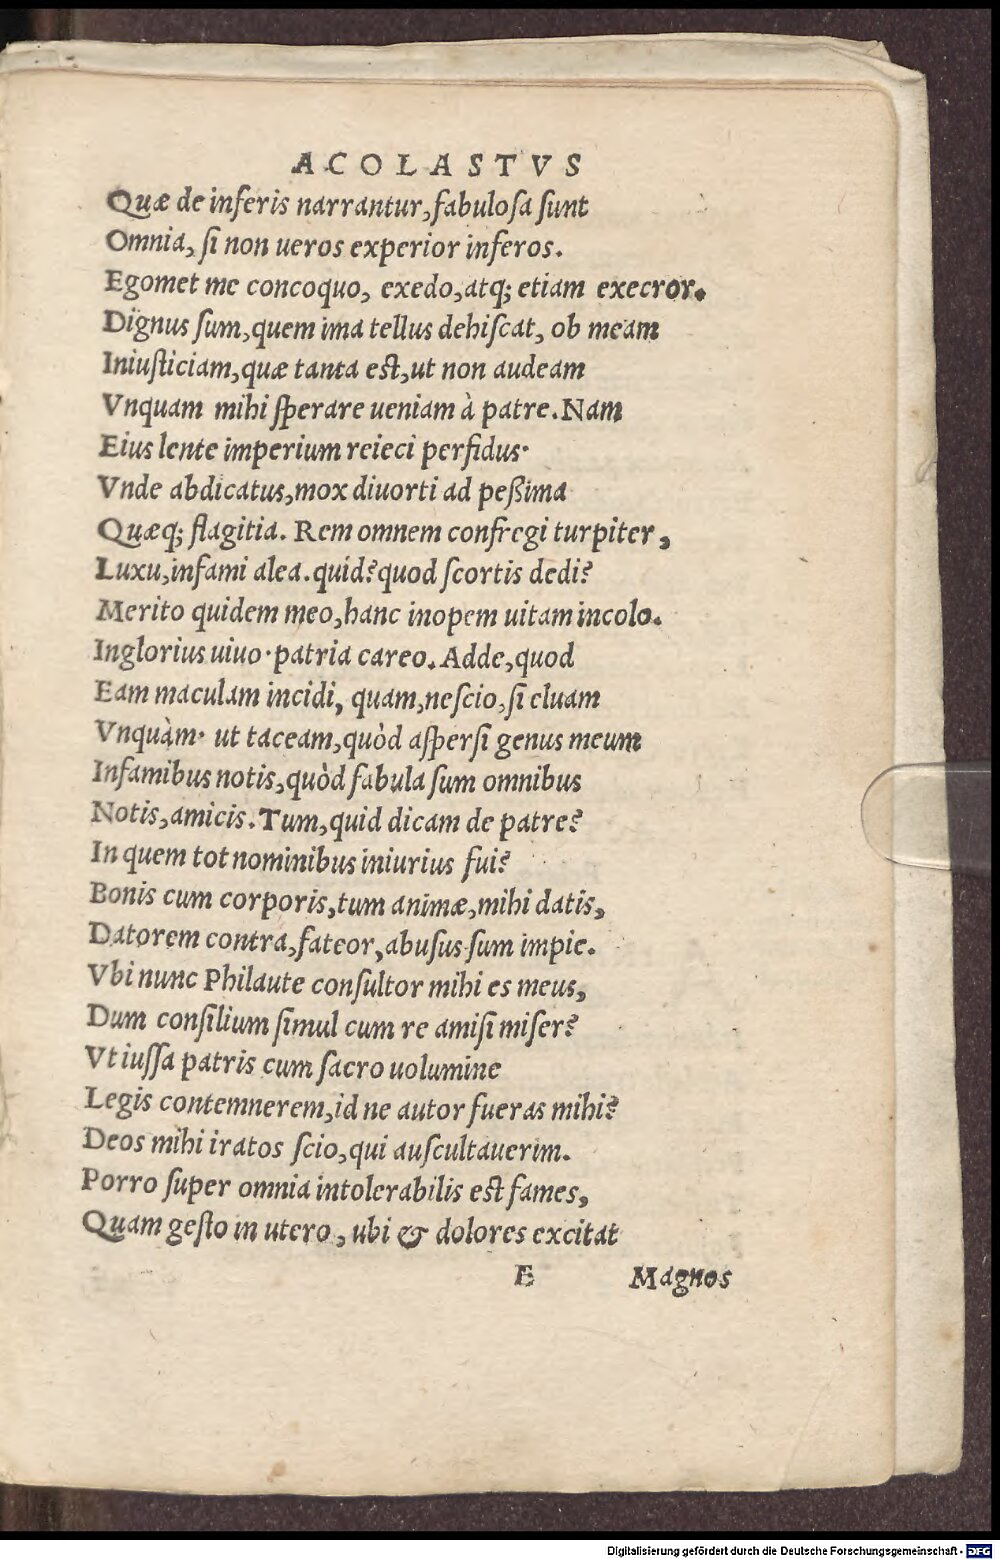 ACOLASTVS
Quæ de inferis narrantur, fabuloſa ſunt
Omnia, ſi non ueros experior inferos.
Egomet me concoquo, exedo, atq; etiam execror.
Dignus ſum, quem ima tellus dehiſcat, ob meam
Iniuſticiam, quæ tanta eſt, ut non audeam
Vnquam mihi ſperare ueniam à patre. Nam
Eius lente imperium reieci perfidus·
Vnde abdicatus, mox diuorti ad peßima
Quæq; flagitia. Rem omnem confregi turpiter,
Luxu, infami alea. quid? quod ſcortis dedi?
Merito quidem meo, hanc inopem uitam incolo.
Inglorius uiuo· patria careo. Adde, quod
Eam maculam incidi, quam, neſcio, ſi eluam
Vnquàm· ut taceam, quòd aſperſi genus meum
Infamibus notis, quòd fabula ſum omnibus
Notis, amicis. Tum, quid dicam de patre?
In quem tot nominibus iniurius fui?
Bonis cum corporis, tum animæ, mihi datis,
Datorem contra, fateor, abuſus ſum impie.
Vbi nunc Philaute conſultor mihi es meus,
Dum conſilium ſimul cum re amiſi miſer?
Vt iuſſa patris cum ſacro uolumine
Legis contemnerem, id ne autor fueras mihi?
Deos mihi iratos ſcio, qui auſcultauerim.
Porro ſuper omnia intolerabilis eſt fames,
Quam geſto in utero, ubi & dolores excitat
E Magnos
Digitalisierung gefördert durch die Deutsche Forschungsgemeinschaft - DFG